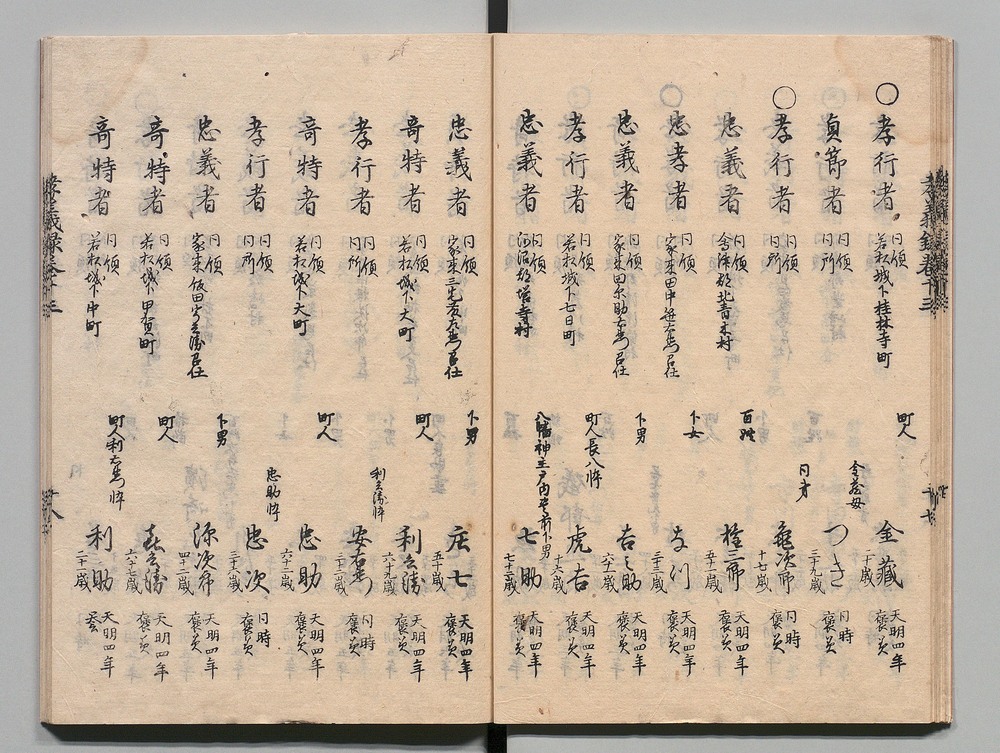 ○孝行者
同領
若松城下桂林寺町
町人
金蔵
二十歳
天明四年
褒美
貞節者
同領
同所
金蔵母
つき
三十九歳
同時
褒美
○孝行者
同領
同所
同才
亀次郎
十七歳
同時
褒美
忠義者
同領
会津郡北青木村
百姓
権三郎
五十二歳
天明四年
褒美
忠孝者
同領
下女
三十二歳
天明四年
褒美
忠義者
同領
下男
吉之助
六十二歳
天明四年
褒美
孝行者
同領
若松城下七日町
町人長八忰
虎吉
十六歳
天明四年
褒美
忠義者
同領
河沼郡塔寺村
七助
七十二歳
天明四年
褒美
忠義者
同領
下男
庄七
五十歳
天明四年
褒美
奇特者
同領
若松城下大町
町人
利兵衛
六十九歳
天明四年
褒美
孝行者
同領
同所
利兵衛忰
安右衛門
同時
褒美
奇特者
同領
若松城下大町
町人
忠助
六十二歳
天明四年
褒美
孝行者
同領
同所
忠助忰
忠次
三十八歳
同時
褒美
忠義者
同領
下男
源次郎
四十二歳
天明四年
褒美
奇特者
同領
若松城下甲賀町
町人
喜兵衛
六十七歳
天明四年
褒美
奇特者
同領
若松城下中町
町人利右衛門忰
利助
二十二歳
天明四年
褒美